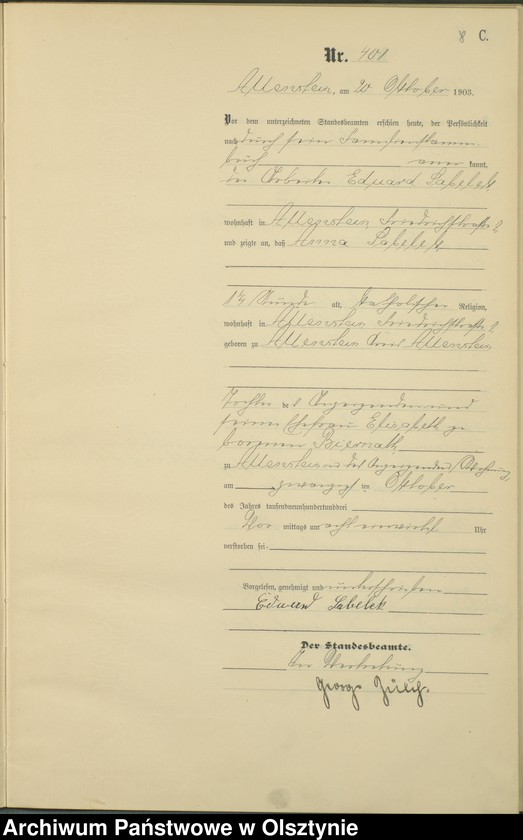 8 C.
Nr. 401
Allenstein, am 20 Oktober 1903.
Vor dem unterzeichneten Standesbeamten erschien heute, der Persönlichkeit
nach durch sein Familienstamm
buch aner kannt,
der Arbeiter Eduard Sabelek
wohnhaft in Allenstein, Friedrichstraße
und zeigte an, daß Anna Sabelek
1½ Stunde alt, katholischer Religion,
wohnhaft in Allenstein Friedrichstraße
geboren zu Allenstein Kreis Allenstein
Tochter des Anzeigenden und
seiner Ehefrau Elisabeth ge
borenen Biernath
zu Allenstein in des Anzeigenden Wohnung
am zwanzigsten Oktober
des Jahres tausendneunhundertunddrei
Vor mittags um acht einviertel Uhr
verstorben sei.
Vorgelesen, genehmigt und unterschrieben
Eduard Sabelek
Der Standesbeamte.
In Vertretung
Georg Zülch.
Archiwum Państwowe w Olsztynie